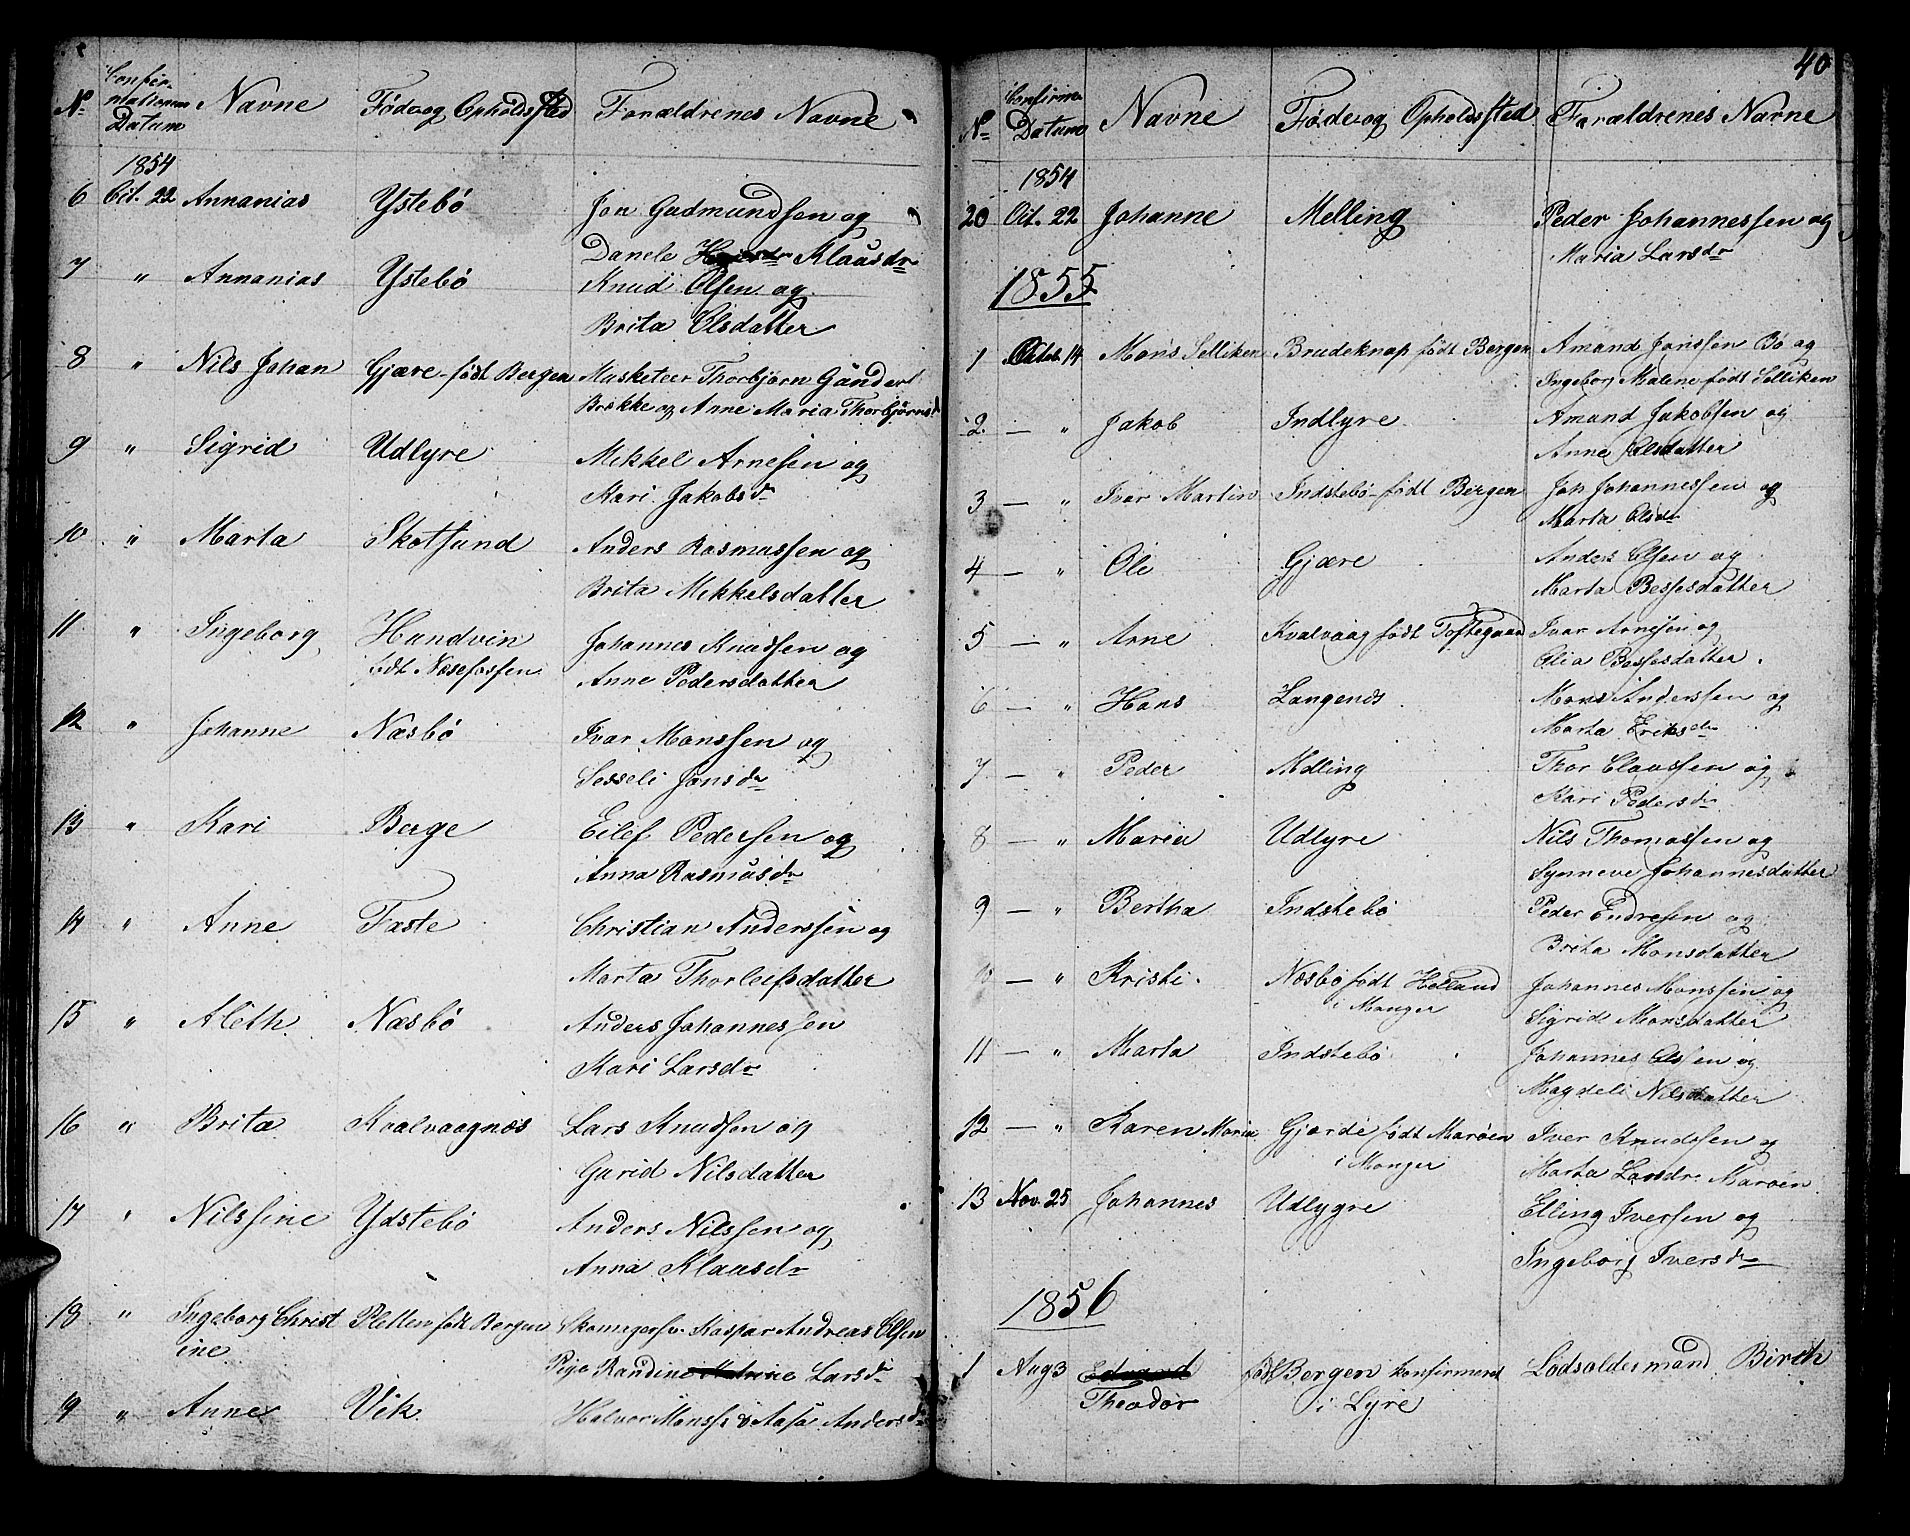 No Confir-
mations
Datum Navne Føde og Opholdsted Forældrenes Navne
1854
6 Oct. 22 Annanias Ystebø Jon Gudmundsen og
Danele Klausdr
7 " Annanias Ystebø Knud Olsen og
Brita Olsdatter
8 " Nils Johan Gjære-født Bergen Musketeer Thorbjørn Gunder
Brække og Anne Maria Thorbjørnsd
9 " Sigrid Udlyre Mikkel Arnesen og
Kari Jakobsdr
10 " Marta Skotsund Anders Rasmussen og
Brita Mikkelsdatter
11 " Ingeborg Hundvin Johannes Knudsen og
født Næsefossen Anne Pedersdatter
12 " Johanne Næsbø Ivar Monssen og
Sesseli Jonsdr
13 " Kari Berge Eilef Pedersen og
Anna Rasmusdr
14 " Anne Faste Christian Anderssen og
Marta Thorleifsdatter
15 " Aleth Næsbø Anders Johannessen
Kari Larsdr
16 " Brita Kaalvaagnæs Lars Knudsen og
Gurid Nilsdatter
17 " Nilssine Ydstebø Anders Nilssen og
Anna Klausdr
18 " Ingeborg Christ Pletten født Bergen Kaspar Andreas Olsen
ine Pige Randine Larsdr
19 " Anne Vik Halvor Monss & Aasa Andersdr
40
No Confirma
Datum Navne Føde og Opholdssted Forældrenes Navne
1854
20 Oct. 22 Johanne Melling Peder Johannessen og
Maria Larsdr
1855
1 Octob. 14 Mons Selliken Brudeknap født Bergen Amund Jonssen Bø og
Ingeborg Malene født Selliken
2 — " Jakob Indlyre Amund Jakobsen og
Anne Olsdatter
3 — " Ivar Martin Indstebø-født Bergen Joh Johannessen og
Marta Olsdr
4 — " Ole Gjære Anders Olsen og
Marta Bessesdatter
5 — " Arne Kvalvaag født Toftegaard Ivar Arnesen og
Olia Bessesdatter
6 — " Hans Langenæs Mons Anderssen og
Marta Eriksdr
7 — " Peder Melling Thor Claussen og
Kari Pedersdr
8 — " Maria Udlyre Nils Thomassen og
Synneve Johannesdatter
9 — " Bertha Indstebø Peder Endresen og
Brita Monsdatter
10 — " Kristi Næsbø født Helland Johannes Monssen og
i Manger Sigrid Monsdatter
11 — " Marta Indstebø Johannes Olssen og
Magdeli Nilsdatter
12 — " Karen Maria Gjærde født Marøen Iver Knudssen og
i Manger Marta Larsdr Marøen
13 Nov. 25 Johannes Udlygre Elling Iversen og
Ingeborg Iversdr
1856
1 Aug 3 Edvard født Bergen konfirmeret Lodsoldermand Birch
Theodor i Lyre